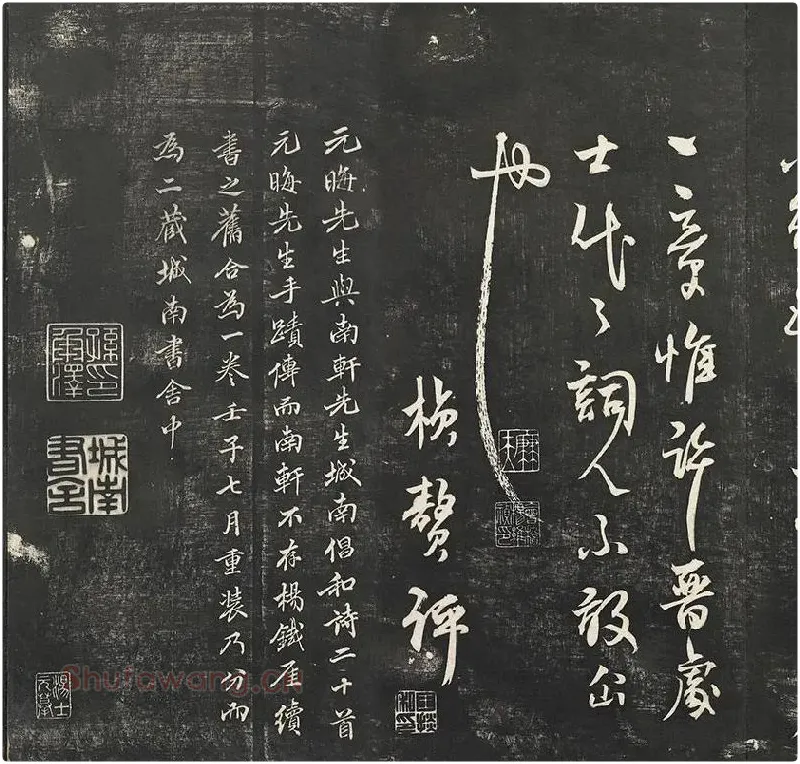 一章惟許晉處
士代々詞人不敢出
廉夫
楨贅評
元晦先生與南軒先生城南倡和詩二十首
元晦先生手蹟傳而南軒不存楊鐵厓續
書之舊合為一卷壬子七月重裝乃分而
為二藏城南書舍中
孫印承澤
城南書舍
Shufawang.cn